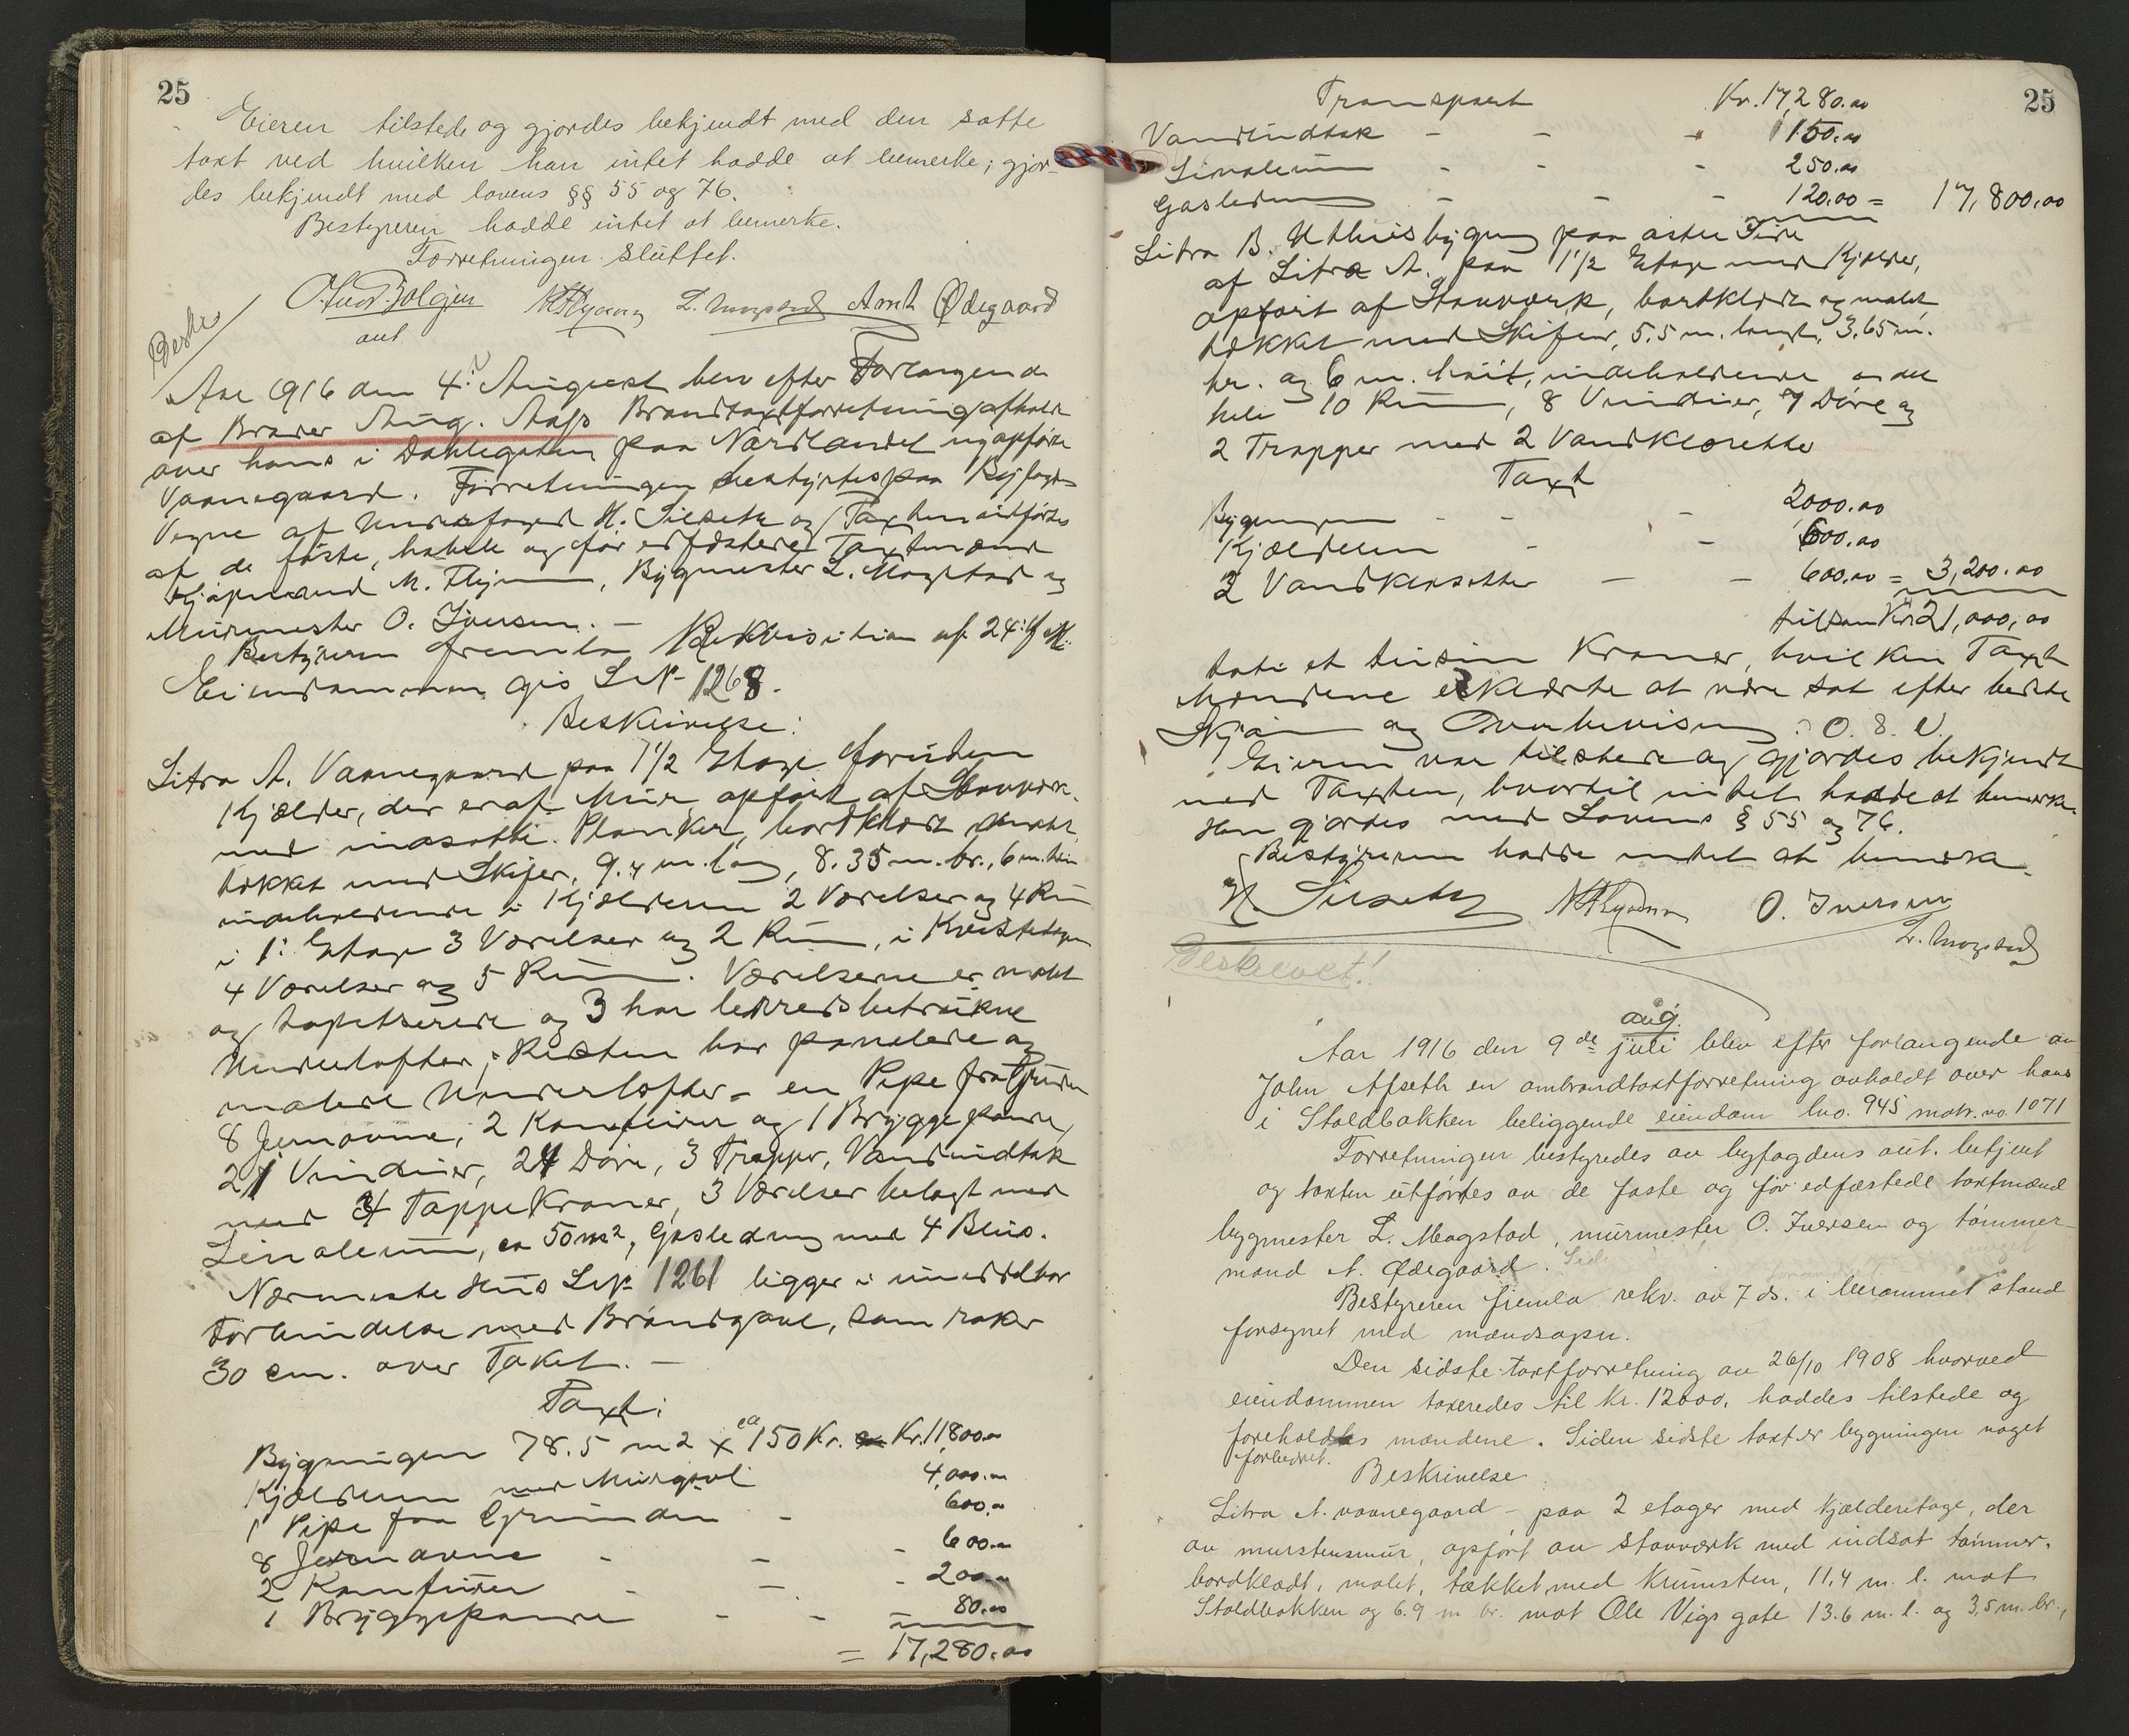 25
Eieren tilstede og gjordes bekjendt med den satte
taxt ved hvilken han intet hadde at bemerke; gjor-
des bekjendt med lovens §§ 55 og 76.
Bestyreren hadde intet at bemerke.
Forretningen sluttet.
L. Magstad Arnt Ødegaard
aut
Aar 1916 den 4. August blev efter Forlangende
af Brører Aug. Branntaxtforretning afholdt
over hans i Dahlegaten paa Nordlandet nyopførte
Vaanegaard. Forretningen bestyrtes paa Byfogd-
Vegne af H. Silseth og Taxten utførtes
af de faste, hertil og før edfæstede Taxtmænd
Kjøpmand M. Flyum, Bygmester L. Magstad og
Murmester O. Iversen. —
Bestyreren fremla Rekvisition af 24. d. M.
Eiendommen gis LNo 1268.
Beskrivelse:
Litra A. Vaanegaard paa 1 1/2 Etage foruden
Kjælder, der er af Mur, opført af Stavværk
med indsatte Planker, bordklædt malet
tækket med Skifer, 9.4 m. lang, 8.35 m. br., 6 m. høi
indeholdende i Kjælderen 2 Værelser og 4 Rum
i 1. Etage 3 Værelser og 2 Rum, i Kvistetagen
4 Værelser og 5 Rum. Værelserne er malt
og tapetserede og 3 har lerredsbetrukne
Underlofter; Resten har panelede og
malede Underlofter - en Pipe fra Grunden
8 Jernovne, 2 Komfurer og 1 Bryggepande,
21 Vinduer, 24 Døre, 3 Trapper, Vandindtak
med 3 Tappekraner, 3 Værelser belagt med
Linoleum, ca 50 m2, Gasledning med 4 Blus.
Nærmeste Hus LNo 1261 ligger i umiddelbar
Forbindelse med Brandgavl, som raker
30 cm. over Taket. —
Taxt:
Bygningen 78.5 m2 x ca 150 Kr. Kr. 11,800.00
Kjælderen med Murgavl 4,000.00
1 Pipe fra Grunden - 600.00
8 Jernovne - - - 600.00
2 Komfurer - - - 200.00
1 Bryggepande - - - 80.00
= 17,280.00
25
Transport Kr. 17,280.00
Vandindtak - - - 150.00
Linoleum - - 250.00
Gasledning - - - 120.00 = 17,800.00
Litra B. Uthusbygning paa østre Side
af Litra A. paa 1 1/2 Etage med Kjælder,
opført af Stavværk, bordklædt og malet,
tækket med Skifer, 5.5 m. langt, 3.65 m.
br. og 6 m. høit, indeholdende i det
hele 10 Rum, 8 Vinduer, 7 Døre og
2 Trapper med 2 Vandklosetter
Taxt
Bygningen - - - 2000.00
Kjælderen - - 600.00
2 Vandklosetter - - 600.00 = 3,200.00
tilsam Kr. 21,000,00
toti et tusin Kroner, hvilken Taxt
Mændene erklærte at være sat efter bedste
Skjøn og Overbevisning. O. S. V.
Eieren var tilstede og gjordes bekjendt
med Taxten, hvortil intet hadde at bemerke
Han gjordes med Lovens § 55 og 76.
Bestyreren hadde intet at bemerke.
H. Silseth O. Iversen
L. Magstad
Beskrevet!
aug.
Aar 1916 den 9de juli blev efter forlangende av
John Afseth en ombrandtaxtforretning avholdt over hans
i Stoldbakken beliggende eiendom lno. 945 matr. no. 1071
Forretningen bestyredes av byfogdens aut. betjent
og taxten utførtes av de faste og før edfæstede taxtmænd
bygmester L. Magstad, murmester O. Iversen og tømmer-
mand A. Ødegaard.
Bestyreren fremla rekv. av 7 ds. i berammet stand
forsynet med mændsopn.
Den sidste taxtforretning av 26/10 1908 hvorved
eiendommen taxeredes til kr. 12000, haddes tilstede og
foreholdtes mændene. Siden sidste taxt er bygningen noget
forbedret.
Beskrivelse:
Litra A. vaanegaard - paa 2 etager med kjælderetage, der
av murstensmur, opført av stavværk med indsat tømmer,
bordklædt, malet, tækket med krumsten, 11,4 m. l. mot
Stoldbakken og 6.9 m br. mot Ole Vigs gate 13.6 m. l. og 3,5 m. br.,